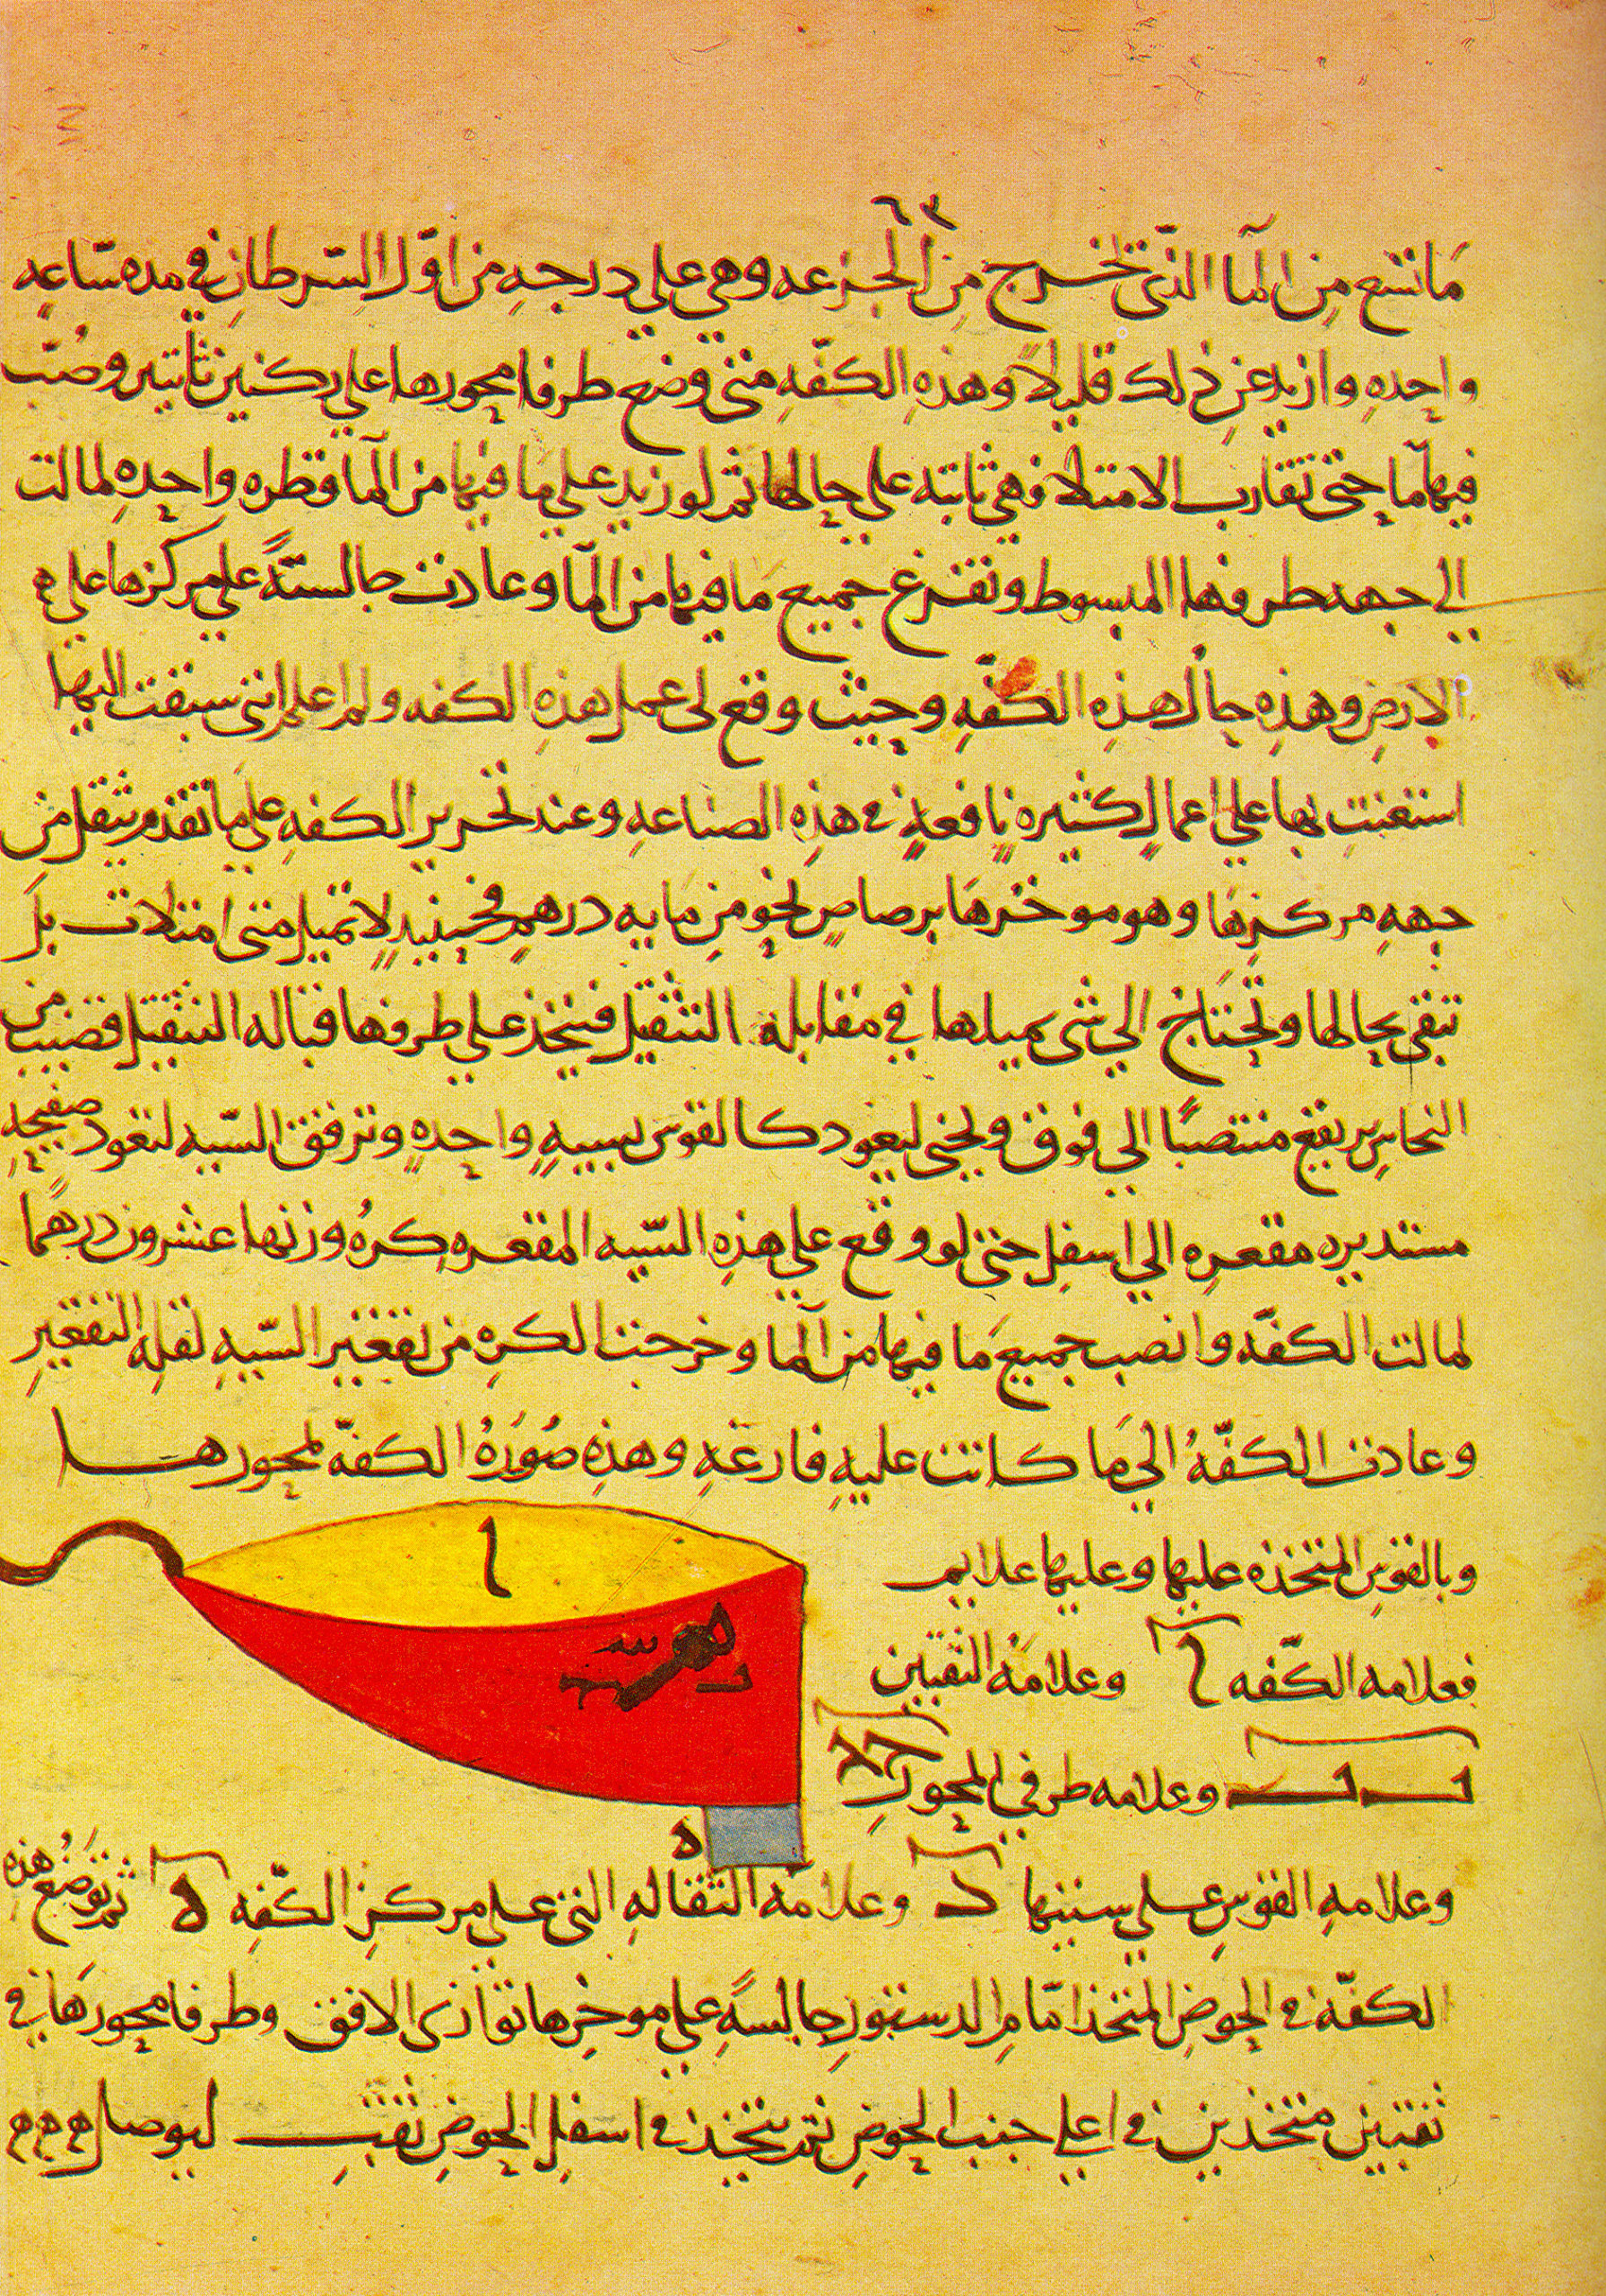 ٦٣
ما تسع من المآ الذي تخرج من الجزعه وهي علي درجهٍ من اوّل السّرطان في مده سّاعهٍ
واحدهٍ وازيد عن ذلك قليلاً وهذه الكفّهِ متى وضع طرفا محورها علي ركنين ثابتين وصُبّ
فيها مآ حتى تقارب الامتلآ فهي ثابته علي حالها ثم لو زيد علي ما فيها من المآ قطره واحدهِ لمالت
الي جهه طرفها المبسوط وتفرغ جميع مَا فيها من المآ وعادت جالسةً علي مركزها علي
الارض وهذه حال هذه الكفّهِ وحيث وقع لى عمل هذه الكفه ولم اعلم انني سبقت اليها
استعنت بها علي اعمالٍ كثيره نافعهٍ في هذه الصناعهِ وعند تحرير الكفهِ علي مَا تقدم يثقل من
جههِ مركزهَا وهو موخرهَا برصاصٍ نحو من مَايه درهمٍ فحينيدٍ لا تميل متى امتلات بل
تبقى بحالها وتحتاج الي شى يميلها في مقابلة التثقيل فيتخذ علي طرفها قبالة التثقيل قضيب من
النحاس يرتفع منتصبًا الي فوق ويحنى ليعود كالقوس بسيهٍ واحدهٍ وترقق السّيه لتعود صفيحهٍ
مستديره مقعره الي اسفل حتى لو وقع علي هذه السّيه المقعره كرهُ وزنها عشرون درهمًا
لمالت الكفّه وانصب جميع مَا فيها من المآ وخرجت الكرهِ من تقعير السّيهِ لقله التقعير
وعادت الكفّهُ الي مَا كانت عليهِ فارغهِ وهذه صُورَهُ الكفّه بمحورها
وبالقوس المتخذه عليها وعليها علايم
ا
فعلامه الكفّه ا وعلامَه الثقبين
ب ب وعلامه طرفي المحور
ه
وعلامهِ القوس علي سيتها د وعلامّه الثقالهِ التى علي مركز الكفّهِ ه ثم توضع هذه
الكفّه في الحوض المتخذ امّام الدستور جالسةً علي موخرها توازى الافق وطرفا محورهَا في
ثقبين متخذين في اعلي جنب الحوض ثم يتخذ في اسفل الحوض ثقب ليوصل